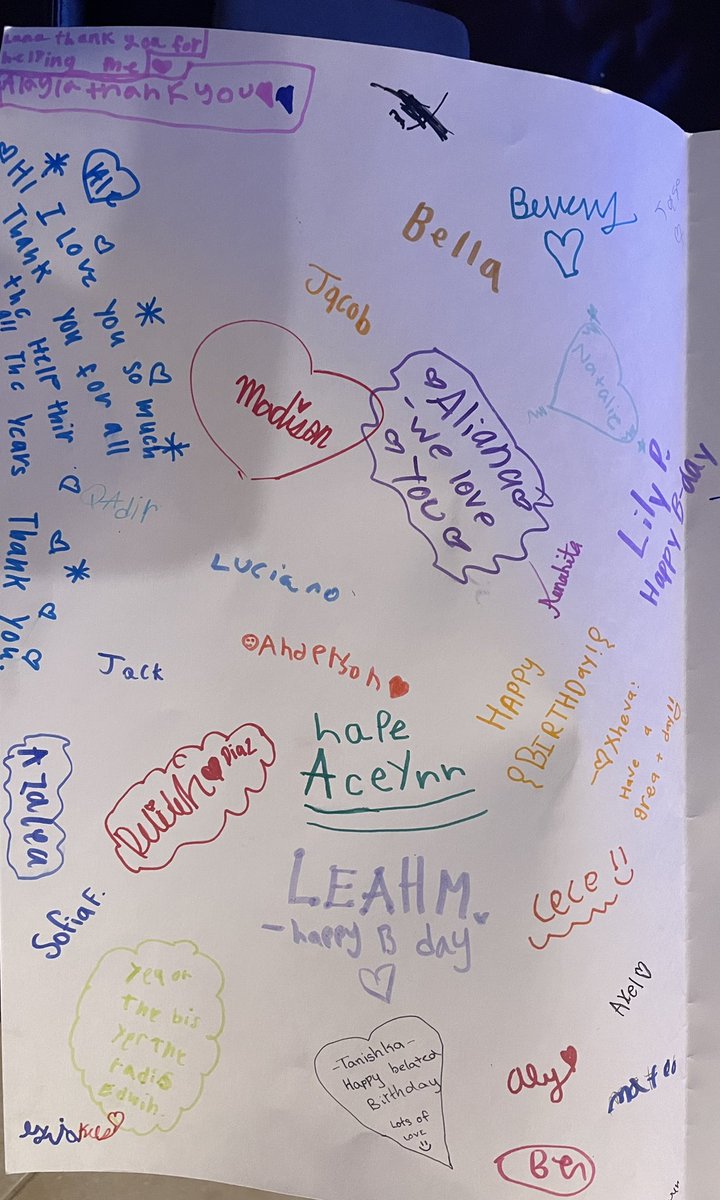 Lana thank you for
helping me
Alayla thank you
Hi
* I love
you so much
HI Thank
you for all
the Help thir
all The years Thank You.
Bella
Jacob
Natalie
Madison
Aliana
-we love
You
Lily P.
Happy B-day
Luciano
Annahita
Anderson
Jack
HAPPY
{BIRTHDAY!}
-Xheva:
Have a
great day!!
hape
Aceynn
Delilah Diaz
Azalea
LEAH M.
-happy B day
cece!!
Sofia F.
yea or
The bis
yer The
radis
Edwin.
Axel
-Tanishka-
Happy belated
Birthday
Lots of
LOVE
aly
mateo